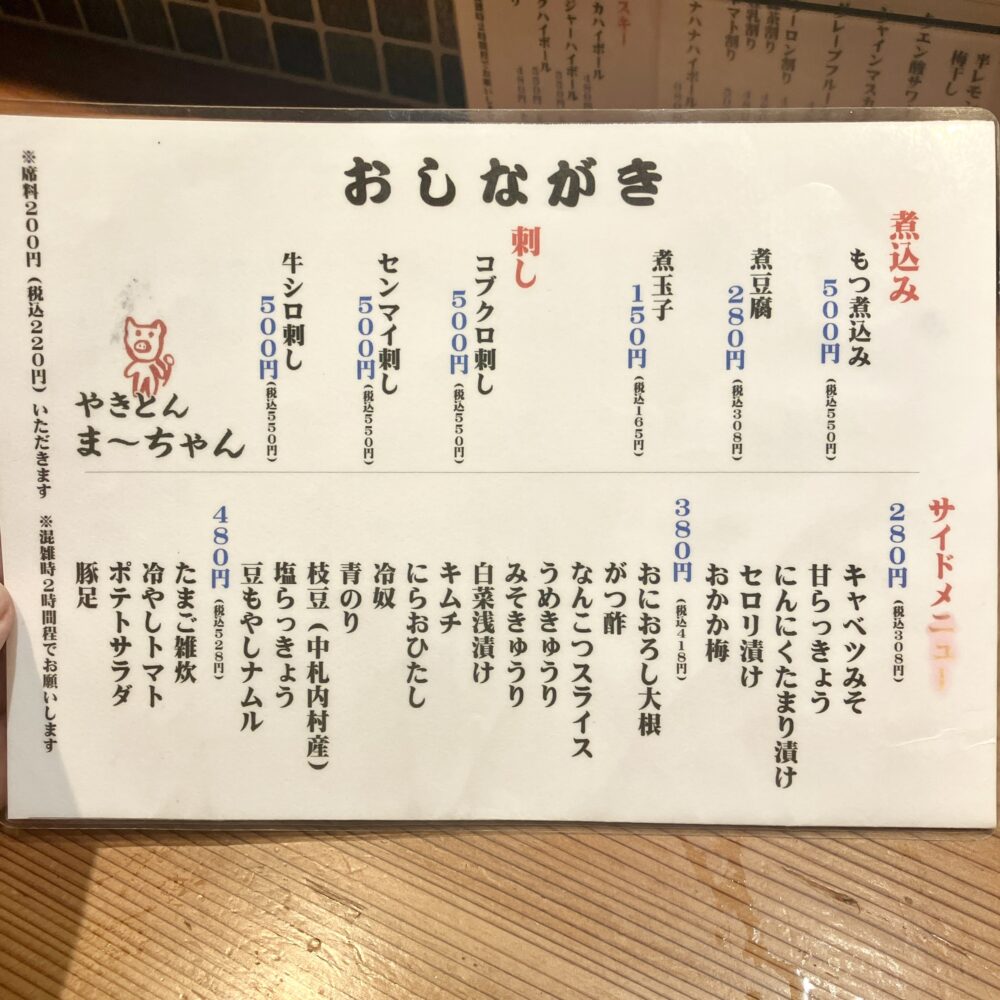 おしながき
煮込み
もつ煮込み
500円(税込550円)
煮豆腐
280円(税込308円)
煮玉子
150円(税込165円)
刺し
コブクロ刺し
500円(税込550円)
センマイ刺し
500円(税込550円)
牛シロ刺し
500円(税込550円)
やきとん
ま〜ちゃん
サイドメニュー
280円(税込308円)
キャベツみそ
甘らっきょう
にんにくたまり漬け
セロリ漬け
おかか梅
380円(税込418円)
おにおろし大根
がつ酢
なんこつスライス
うめきゅうり
みそきゅうり
白菜浅漬け
キムチ
にらおひたし
冷奴
青のり
枝豆(中札内村産)
塩らっきょう
豆もやしナムル
480円(税込528円)
たまご雑炊
冷やしトマト
ポテトサラダ
豚足
※席料200円(税込220円)いただきます ※混雑時2時間程でお願いします
半レモン
梅干し
エン酸サワ
シャインマスカ
グレープフルー
ーロン割り
茶割り
マト割り
ナハナハイボール
スキー
カハイボール
ジャーハイボール
クハイボール